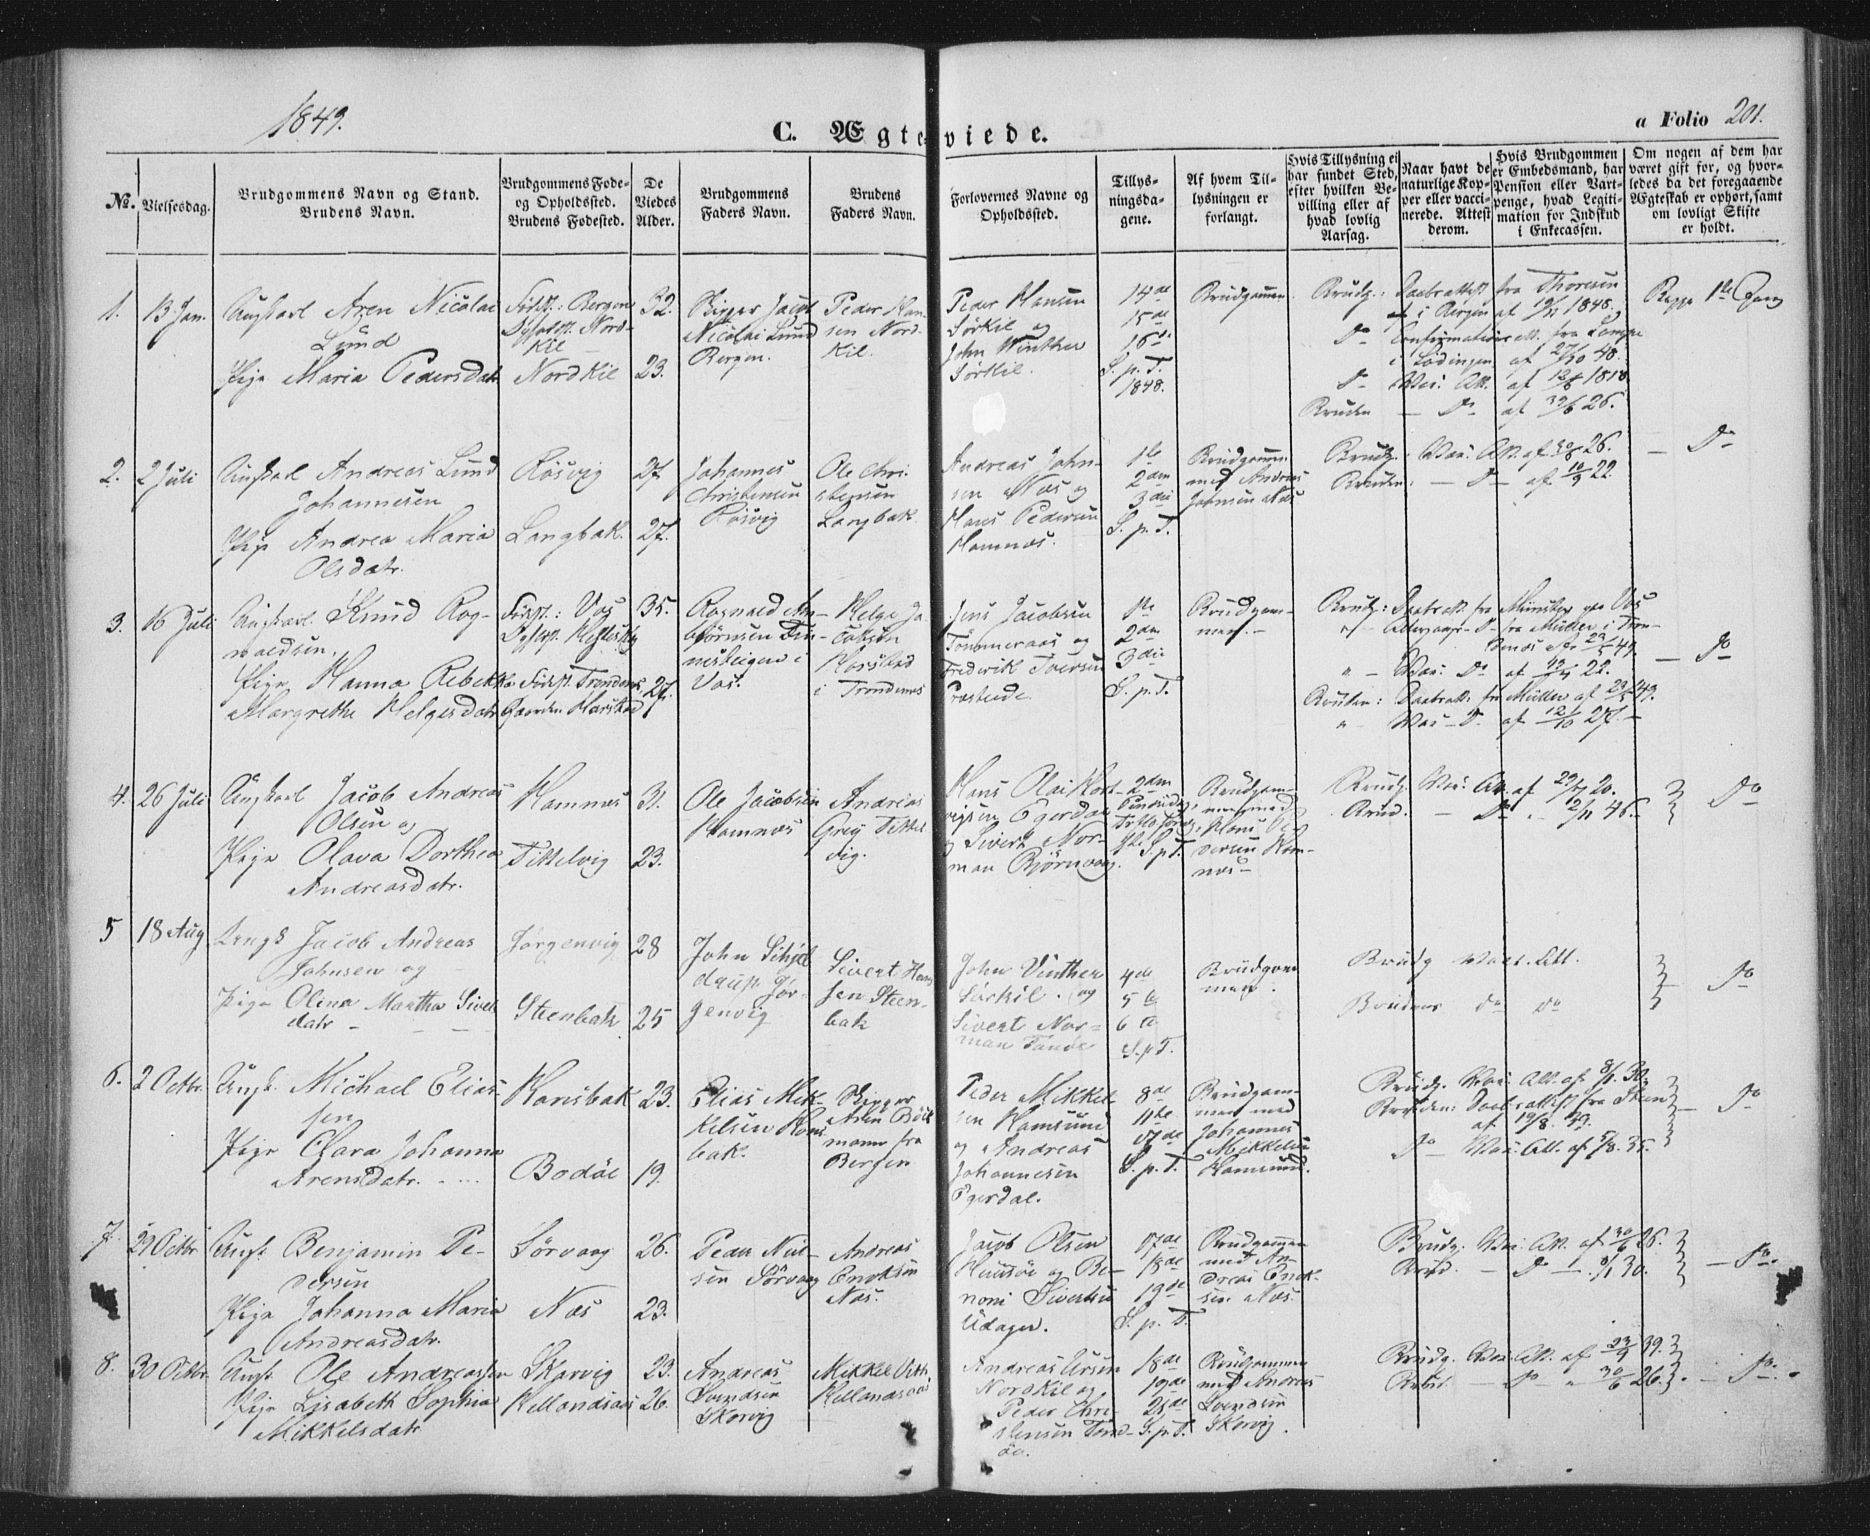 1849.
C. Ægteviede.
a Folio 201.
No.
Vielsesdag.
Brudgommens Navn og Stand.
Brudens Navn.
Brudgommens Føde-
og Opholdssted.
Brudens Fødested.
De
Viedes
Alder.
Brudgommens
Faders Navn.
Brudens
Faders Navn.
Forlovernes Navne og
Opholdssted.
Tillys-
ningsda-
gene.
Af hvem Til-
lysningen er
forlangt.
Hvis Tillysning ei
har fundet Sted,
efter hvilken Be-
villing eller af
hvad lovlig
Aarsag.
Naar havt de
naturlige Kop-
per eller vacci-
nerede. Attest
derom.
Hvis Brudgommen
er Embedsmand, har
Pension eller Vart-
penge, hvad Legiti-
mation for Indskud
i Enkecassen.
Om nogen af dem har
været gift før, og hvor-
ledes da det foregaaende
Ægteskab er ophørt, samt
om lovligt Skifte
er holdt.
1. 13 Jan. Ungkarl Aren Nicolai
Lund
Pige Maria Pedersdatr.
Fødst.: Bergen
Opholdst. Nord-
kil
Nordkil
32.
23.
Skipper Jacob
Nicolai Lund
Bergen.
Peder Han-
sen Nord-
kil.
Peder Hansen
Sørkil og
John Winther
Sørkil.
14de
15de
16de
S. p. T.
1848.
Brudgommen.
Brudg.: Daabsattest fra Thorsen
i Bergen af 19/12 1848.
Do Confirmationsatt. fra Lampe
i Lødingen af 27/10 48.
Do Vac: Att. af 12/8 1818.
Bruden — Do af 30/6 26.
Begge 1ste Gang
2. 2 Juli Ungkarl Andreas Lund
Johannesen
Pige Andrea Maria
Olsdatr.
Røsvig
Langbak.
27
27.
Johannes
Christensen
Røsvig
Ole Chri-
stensen
Langbak.
Andreas John-
sen Næs og
Hans Pedersen
Hamnæs.
1ste
2den
3die
S. p. T.
Brudgommen
med Andreas
Johnsen Næs
Brudg.: Vac: Att. af 30/6 26.
Bruden: — Do — af 10/9 22.
— Do
3. 16 Juli Ungkarl Knud Rog-
naldsen.
Pige Hanna Rebekka
Margrethe Helgesdatr.
Fødst.: Vos
Fødst. Trondenæs
Gaarden Harstad
35.
27.
Rognald
i
Vos.
Helge Ja-
cobsen
Harstad
i Trondenæs
Jens Jacobsen
Tømmeraas og
Frederik Iversen
Præsteide.
1ste
2den
3die
S. p. T.
Brudgom-
men.
Brudg: Daabsatt. fra Münster paa Vos
" Vac: Do af 22.
Bruden: Daabsatt. fra Müller af 49.
" Vac — Do af 12/10 27.
— Do
4. 26 Juli Ungkarl Jacob Andreas
Olsen og
Pige Olava Dorthea
Andreasdatr.
Hamnæs
Tittelvig
31.
23.
Ole Jacobsen
Hamnæs
Andreas
Greg Tittel-
vig.
Hans Olai Hart-
vigsen Egerdal
og Sivert Nor-
man Bjørnvaag.
2den
S. p. T.
Brudgom-
men med
Hans Pe-
dersen Ham-
næs
Brudg. Vac: Att. af 20.
Brud. — Do — 12/11 46.
Do
5 18 Aug Ungk Jacob Andreas
Johnsen og
Pige Olina Martha Sivers
datr
Jørgenvig
Steenbak
28
25
John Schjel
derup Jør-
genvig
Sivert Han
sen Steen-
bak
John Vinther
Sørkil. og
Sivert Nor-
man
4de
5te
6te
S. p. T.
Brudgom
men.
Brudg Vacc. Att.
Brudens do do
Do
6. 2 Octbr. Ungk. Michael Elias-
sen
Pige Clara Johanna
Arensdatr.
Hansbak
Bodøe
23.
19.
Elias Mik-
kelsen Hans
bak.
Skipper
Aren Böck-
mann fra
Bergen
Peder Mikkel
sen Hamsund
og Andreas
Johannesen
Egerdal.
8de
11te
17de
S. p. T.
Brudgom-
men med
Johannes
Mikkelsen
Hamsund.
Brudg. Vac: Att. af 8/1 30.
Bruden: Daabsattest fra Steen
af 19/8. 49.
Do Vac: Att. af 5/8. 35.
— Do
7. 29 Octbr. Ungk. Benjamin Pe-
dersen
Pige Johanna Maria
Andreasdatr.
Sørvaag
Næs
26.
23.
Peder Niel-
sen Sørvaag
Andreas
Enoksen
Næs.
Jacob Olsen
Husøe og Be-
noni Sivertsen
Udager.
17de
18de
19de
S. p. T.
Brudgommen
med An-
dreas Enok-
sen Næs.
Brudg. Vac: Att. af 30/6 26.
Brud. — Do — 8/1 30.
— Do.
8. 30 Octbr. Ungk. Ole Andreassen
Pige Lisabeth Sophia
Mikkelsdatr.
Skarvig
Kellandsaas
23.
26.
Andreas
Svendsen
Skarvig
Mikkel
Kellandsaas
Andreas Ursin
Nordkil og
Peder Chri-
stensen Tran-
øe.
18de
19de
21de
S. p. T.
Brudgommen
med Andreas
Svendsen
Skarvig.
Brudg. Vac: Att. af 23/9 39.
Brud — Do " 30/6 26.
— Do.